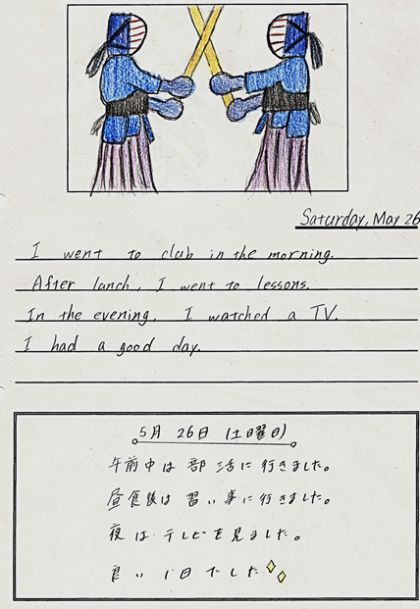 Saturday, May 26
I went to club in the morning.
After lunch, I went to lessons.
In the evening, I watched a TV.
I had a good day.
5月 26日 (土曜日)
午前中は 部活に 行きました。
昼食後は 習い事に行きました。
夜は テレビを見ました。
良い 1日でした